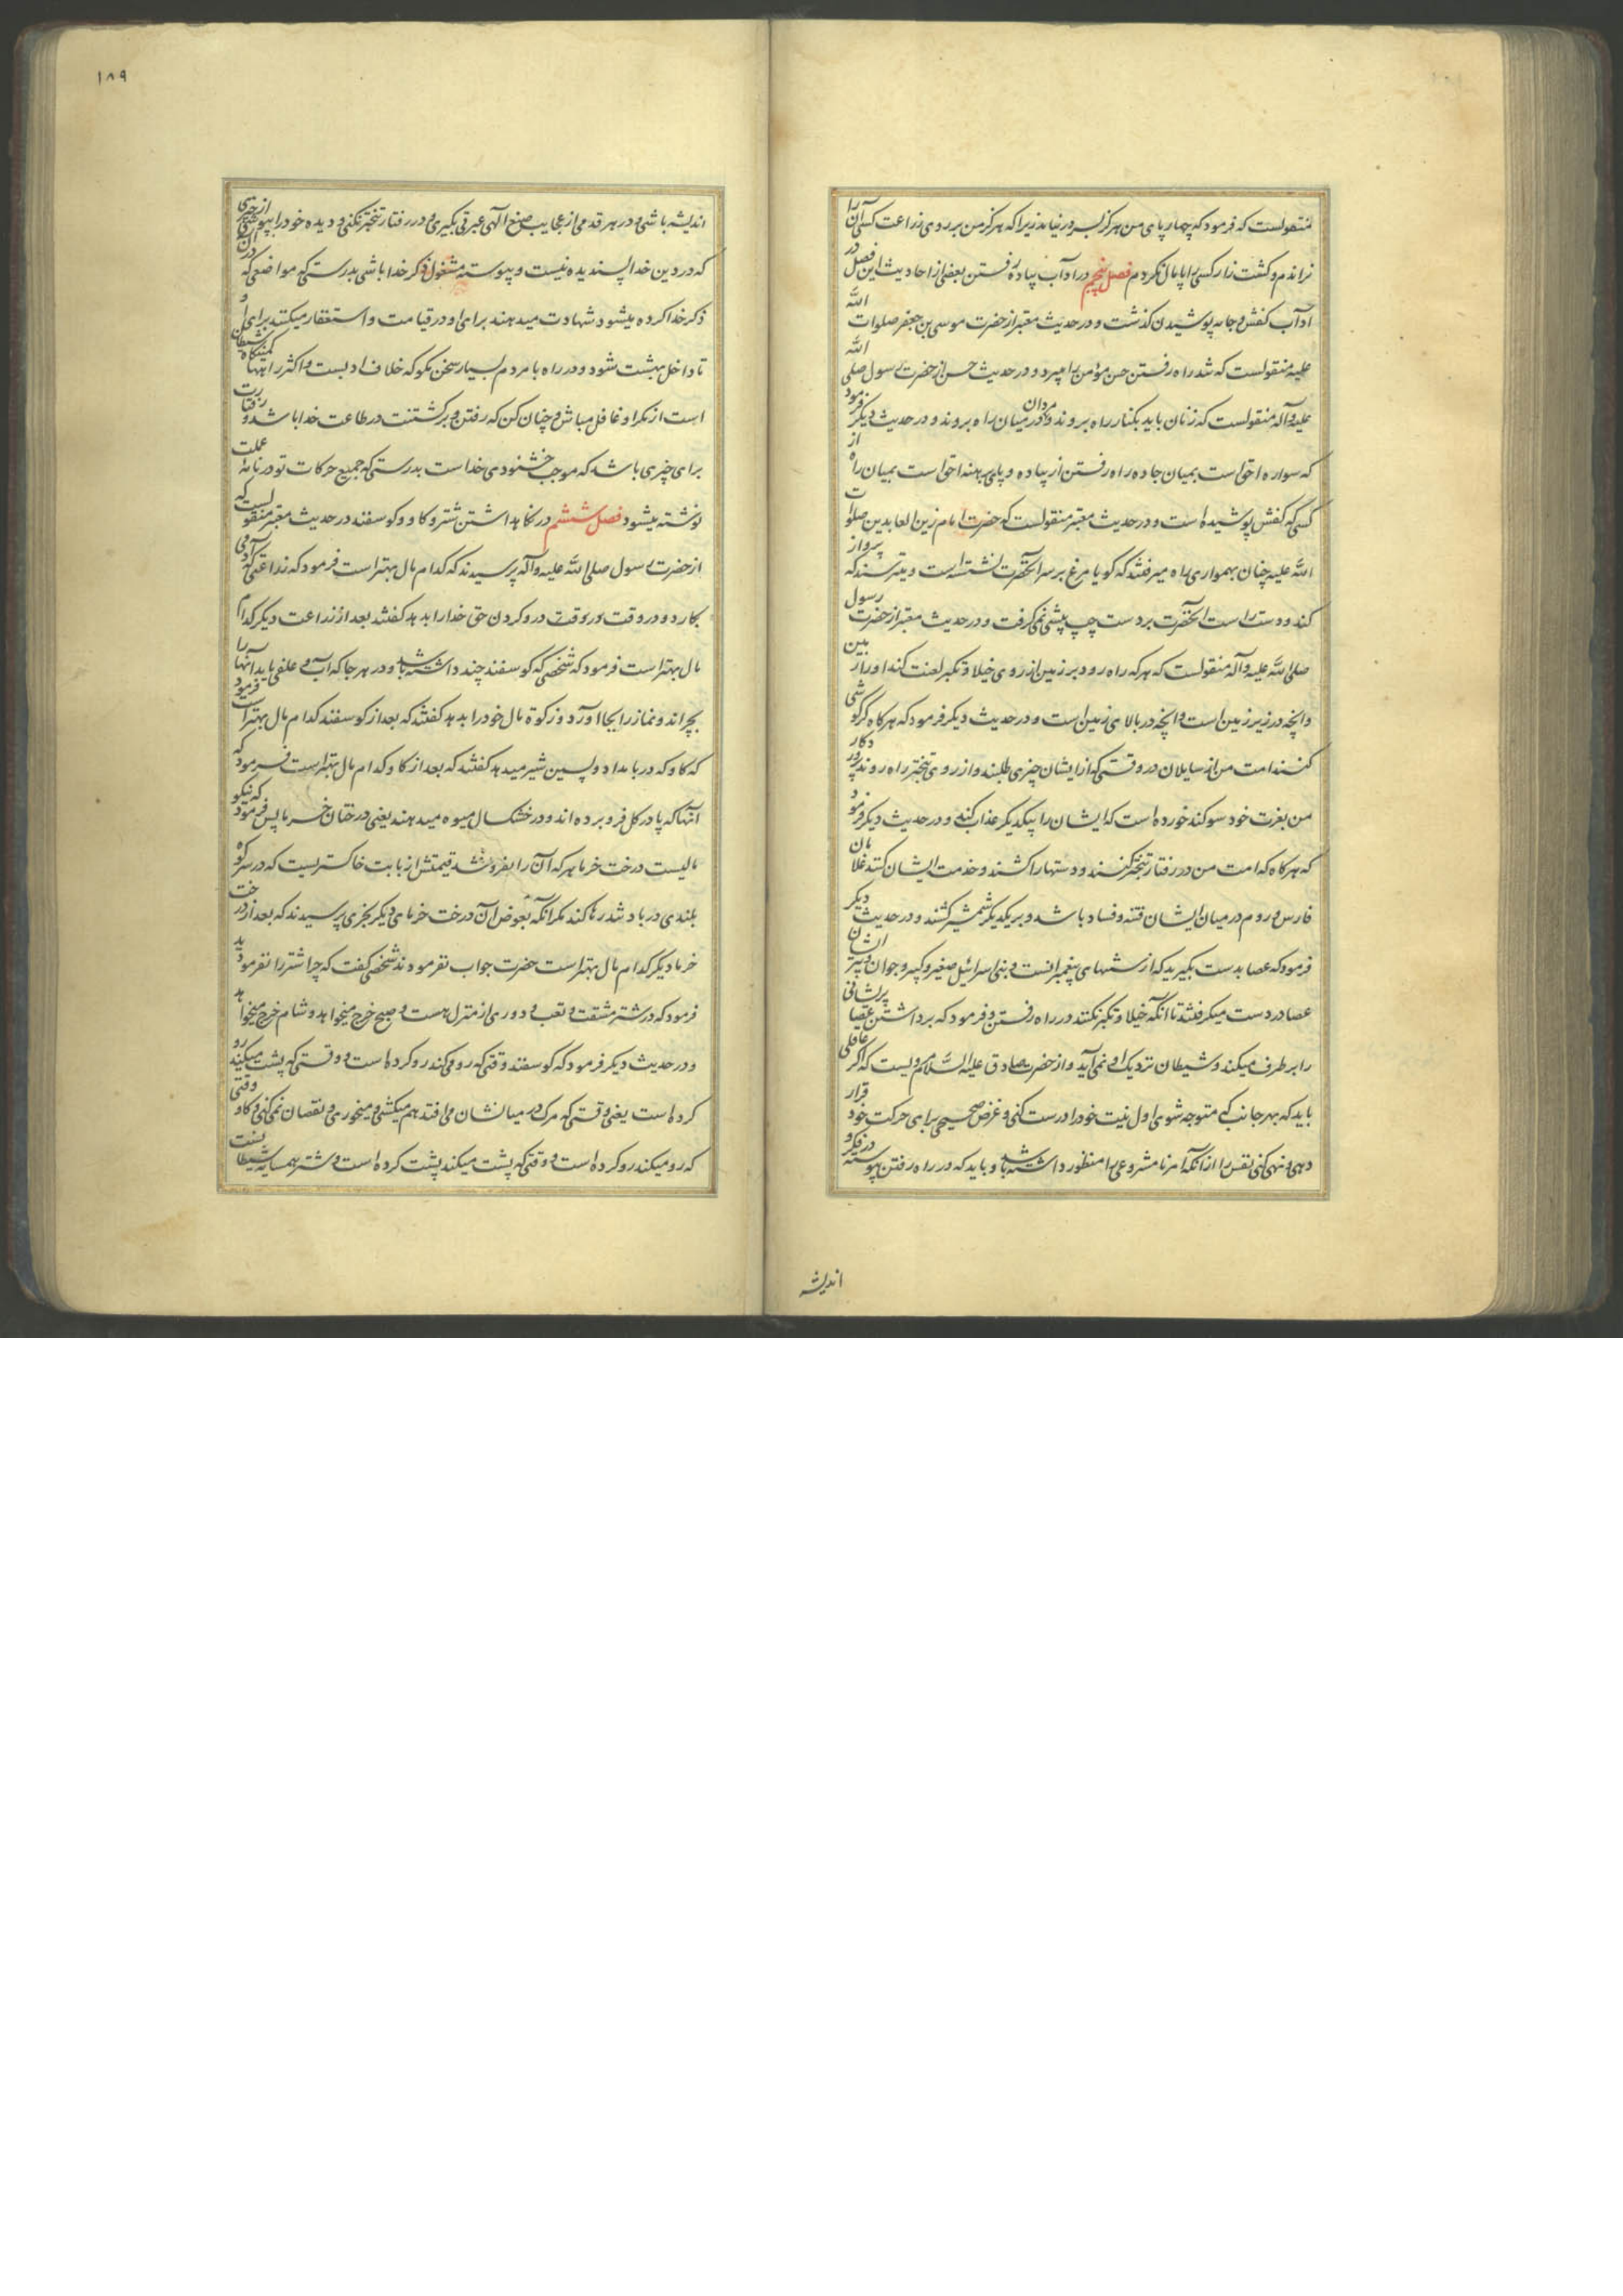 منقولست که فرمود که چهار پای من هرگز بسر در نیامد زیرا که هرگز من بر روی زراعت کسی آن را
نراندم و کشت زار کسی را پامال نکردم فصل پنجم در آداب پیاده رفتن بعضی از احادیث این فصل در
آداب کفش و جامه پوشیدن گذشت و در حدیث معتبر از حضرت موسی بن جعفر صلوات الله
علیه منقولست که تند راه رفتن حسن مؤمن را میبرد و در حدیث حسن از حضرت رسول صلی الله
علیه و آله منقولست که زنان باید بکنار راه بروند و مردان در میان راه بروند و در حدیث دیگر فرمود
که سواره احق است بمیان جاده راه رفتن از پیاده و پای برهنه احق است بمیان راه از
کسی که کفش پوشیده است و در حدیث معتبر منقولست که حضرت امام زین العابدین صلوات
الله علیه چنان بهمواری راه میرفتند که گویا مرغ بر سر آنحضرت نشسته است و میترسند که پرواز
کند و دست راست آنحضرت بر دست چپ پیشی نمی گرفت و در حدیث معتبر از حضرت رسول
صلی الله علیه و آله منقولست که هر که راه رود بر زمین از روی خیلا و تکبر لعنت کند او را زمین
و آنچه در زیر زمین است و آنچه در بالای زمین است و در حدیث دیگر فرمود که هرگاه گرکوشی
کنند امت من از سایلان در وقتی که از ایشان چیزی طلبند و از روی تبختر راه روند پروردکار
من بعزت خود سوکند خورده است که ایشان را بیکدیگر عذاب کند و در حدیث دیگر فرمود
که هرگاه که امت من در رفتار تبختر کنند و دستها را کشند و خدمت ایشان کنند غلامان
فارس و روم در میان ایشان فتنه و فساد باشد و بر یکدیگر شمشیر کشند و در حدیث دیگر
فرمود که عصا بدست بگیرید که از سنتهای پیغمبرانست و بنی اسرائیل صغیر و کبیر و جوان و پیر ایشان
عصا در دست میگرفتند تا آنکه خیلا و تکبر نکنند در راه رفتن و فرمود که برداشتن عصا پریشانی
را بر طرف میکند و شیطان نزدیک او نمی آید و از حضرت صادق علیه السلام مرویست که اگر عاقلی
باید که بهر جانب که متوجه شوی اول نیت خود را درست کنی و غرض صحیحی برای حرکت خود قرار
دهی و نهی کنی نفس را از آنکه امر نامشروعی را منظور داشته باشد و باید که در راه رفتن پیوسته در فکر و
اندیشه
۱۸۹
اندیشه باشی و در هر قدمی از عجایب صنع الهی عبرتی بگیری و در رفتار تبختر نکنی و دیده خود را بپوشی از چیزی
که در دین خدا پسندیده نیست و پیوسته مشغول ذکر خدا باشی بدرستی که مواضعی که در آن
ذکر خدا کرده میشود شهادت میدهند برای او در قیامت و استغفار میکنند برای او
تا داخل بهشت شود و در راه با مردم بسیار سخن مگو که خلاف ادبست و اکثر راهها کمینگاه شیطان
است از مکر او غافل مباش و چنان کن که رفتن و برگشتنت در طاعت خدا باشد و رفتارت
برای چیزی باشد که موجب خشنودی خداست بدرستی که جمیع حرکات تو در نامه عملت
نوشته میشود فصل ششم در نگاهداشتن شتر و کاو و کوسفند در حدیث معتبر منقولست که
از حضرت رسول صلی الله علیه و آله پرسیدند که کدام مال بهتر است فرمود که زراعتی که آدمی
بکارد و در وقت درو کردن حق خدا را بدهد گفتند بعد از زراعت دیگر کدام
مال بهتر است فرمود که شخصی که کوسفند چند داشته باشد و در هر جا که آب و علفی یابد آنها را
بچراند و نماز را بجا آورد و زکوة مال خود را بدهد گفتند که بعد از کوسفند کدام مال بهتر است فرمود
که کاو که در بامداد و پسین شیر میدهد گفتند که بعد از کاو کدام مال بهتر است فرمود که
آنها که پا در گل فرو برده اند و در خشکسال میوه میدهند یعنی درختان خرما پس فرمود که نیکو
مالیست درخت خرما هر که آن را بفروشد قیمتش از بابت خاکستریست که در سر کوه
بلندی در باد تند رها کند مگر آنکه بعوض آن درخت خرمای دیگر بخری پرسیدند که بعد از درخت
خرما دیگر کدام مال بهتر است حضرت جواب نفرمودند شخصی گفت که چرا شتر را نفرمودید
فرمود که در شتر مشقت و تعب و دوری از منزل هست و صبح خرج میخواهد و شام خرج میخواهد
و در حدیث دیگر فرمود که کوسفند وقتی که رو می کند رو کرده است و وقتی که پشت میکند رو
کرده است یعنی وقتی که مرک در میانشان می افتد هم میکشی و میخوری و نقصان نمی کنی و کاو وقتی
که رو میکند رو کرده است و وقتی که پشت میکند پشت کرده است و شتر همسایه شیطانست